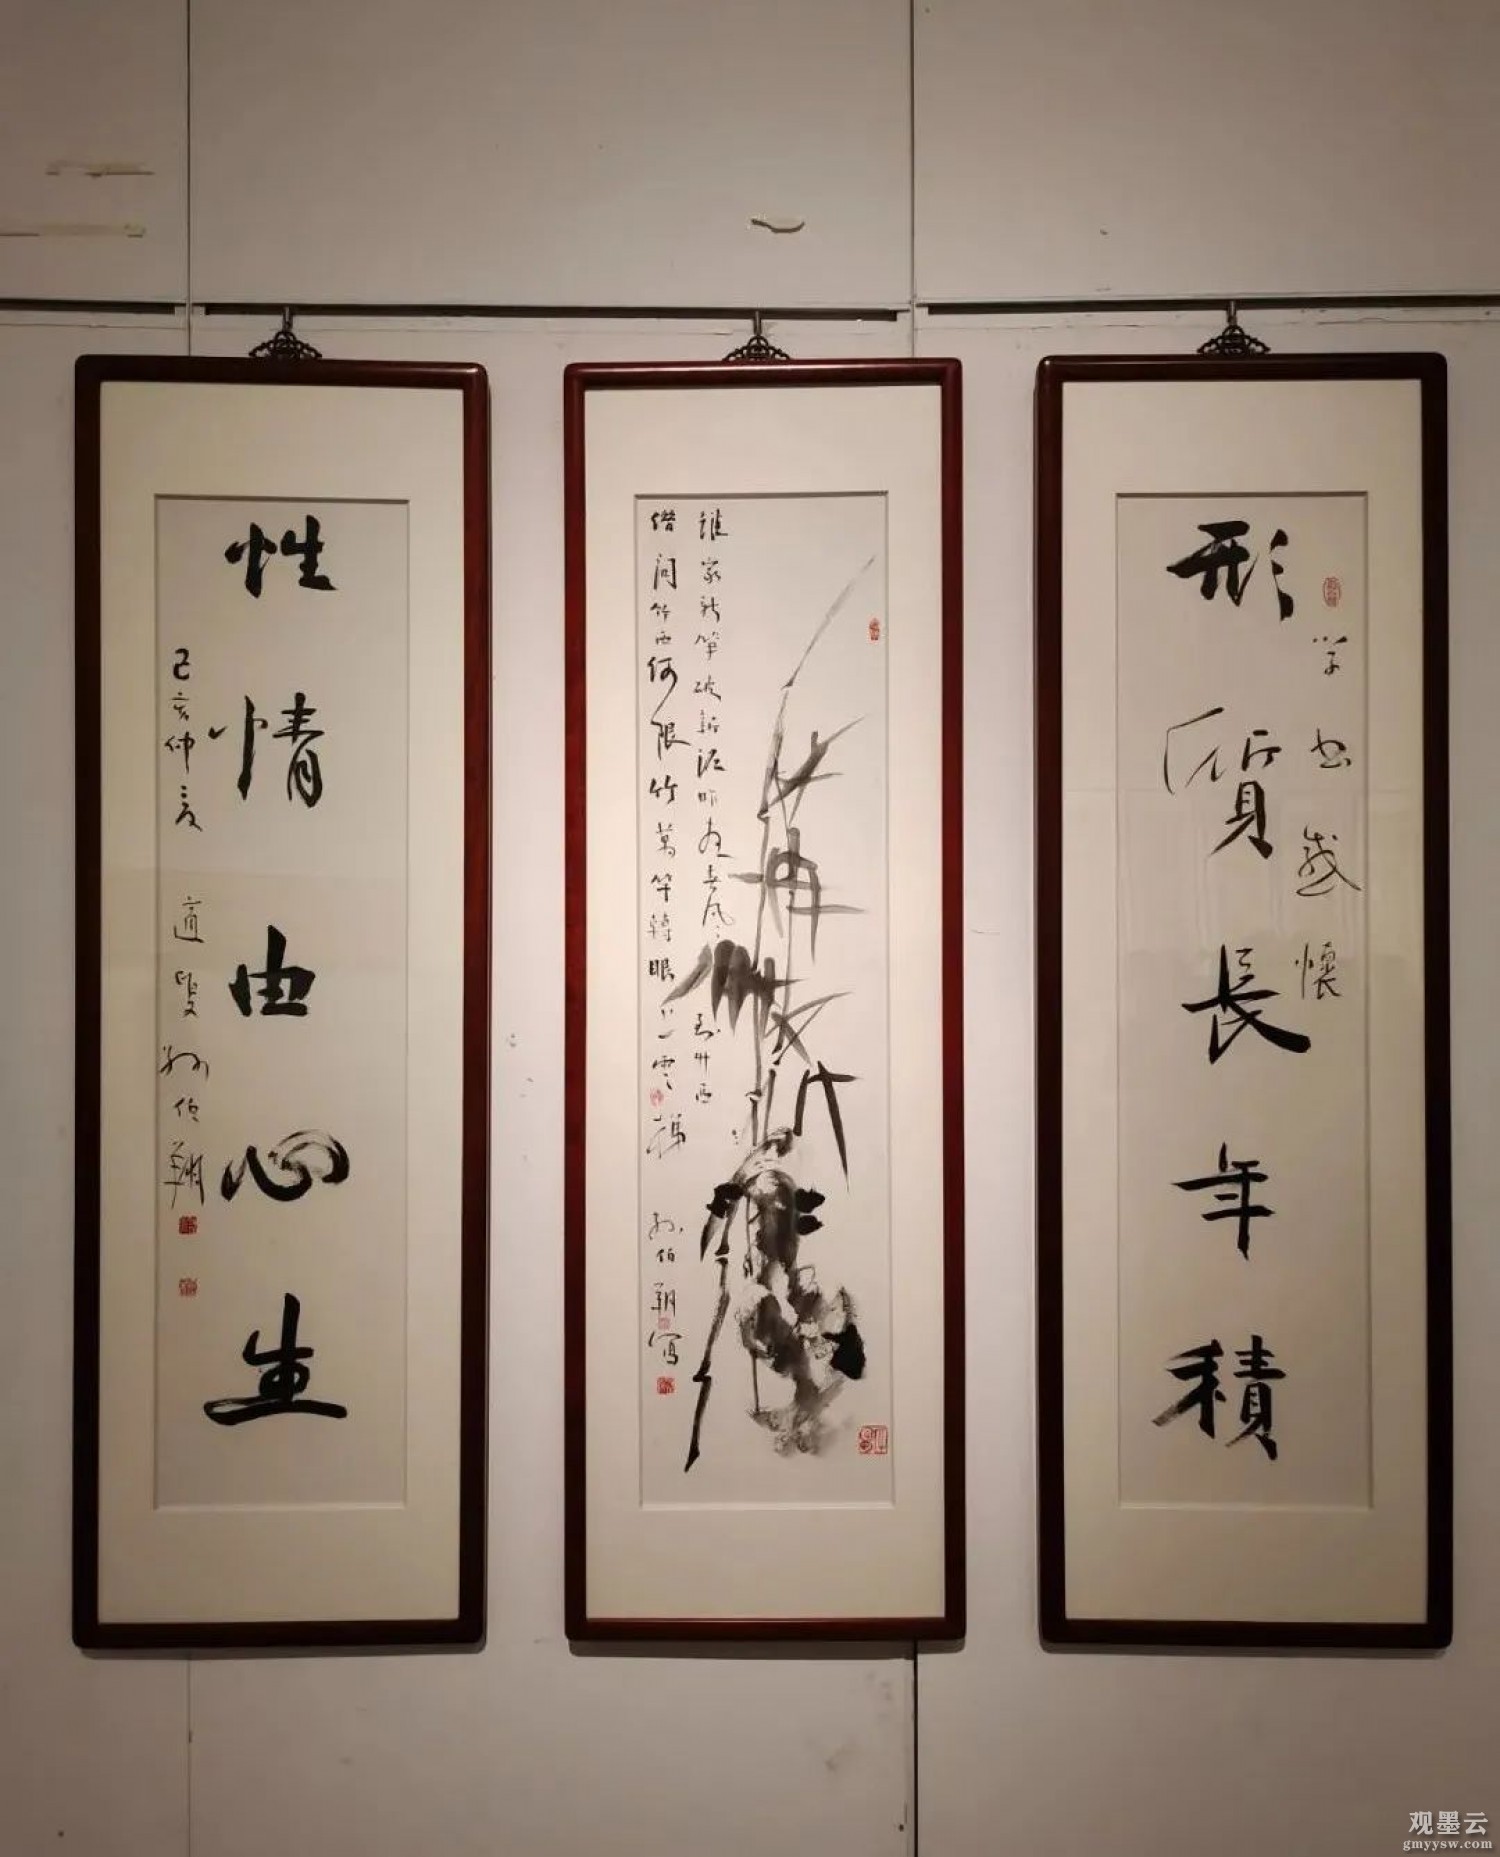 形質長年積
学书感懷
誰家新笋破新泥昨夜春风到竹西
借問竹西何限竹萬竿轉眼上雲梯 孙伯翔寫
性情由心生
己亥仲夏 適叟 孙伯翔
观墨云
gmyysw.com